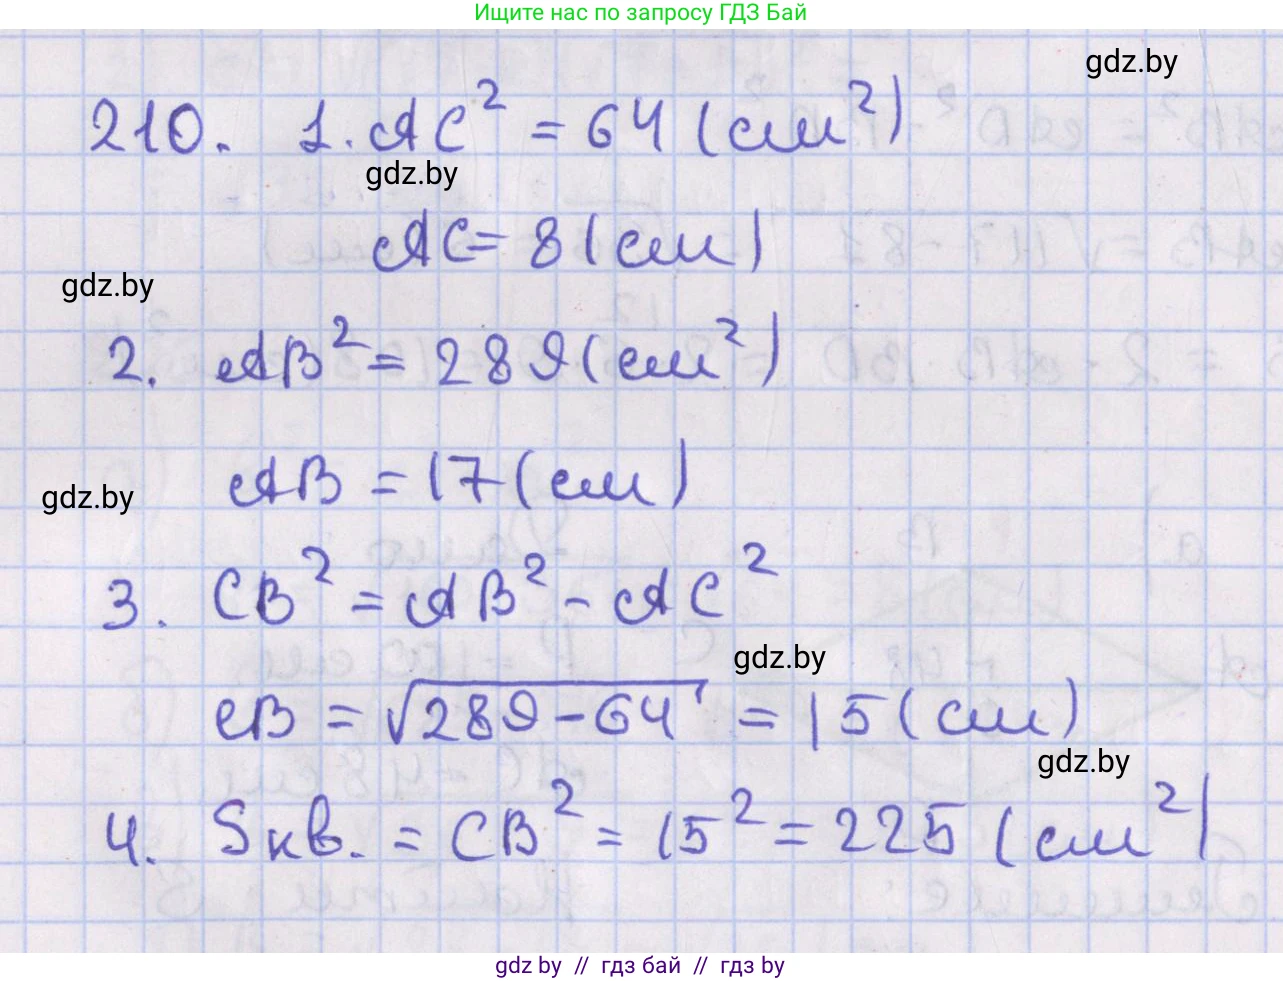 Ищите нас по запросу ГДЗ Бай
gdz.by
210. 1. AC² = 64 (см²)
gdz.by
AC = 8 (см)
gdz.by
2. AB² = 289 (см²)
AB = 17 (см)
gdz.by
3. CB² = AB² - AC²
gdz.by
CB = √289 - 64 = 15 (см)
gdz.by
4. Sкв. = CB² = 15² = 225 (см²)
gdz by // гдз бай // гдз by